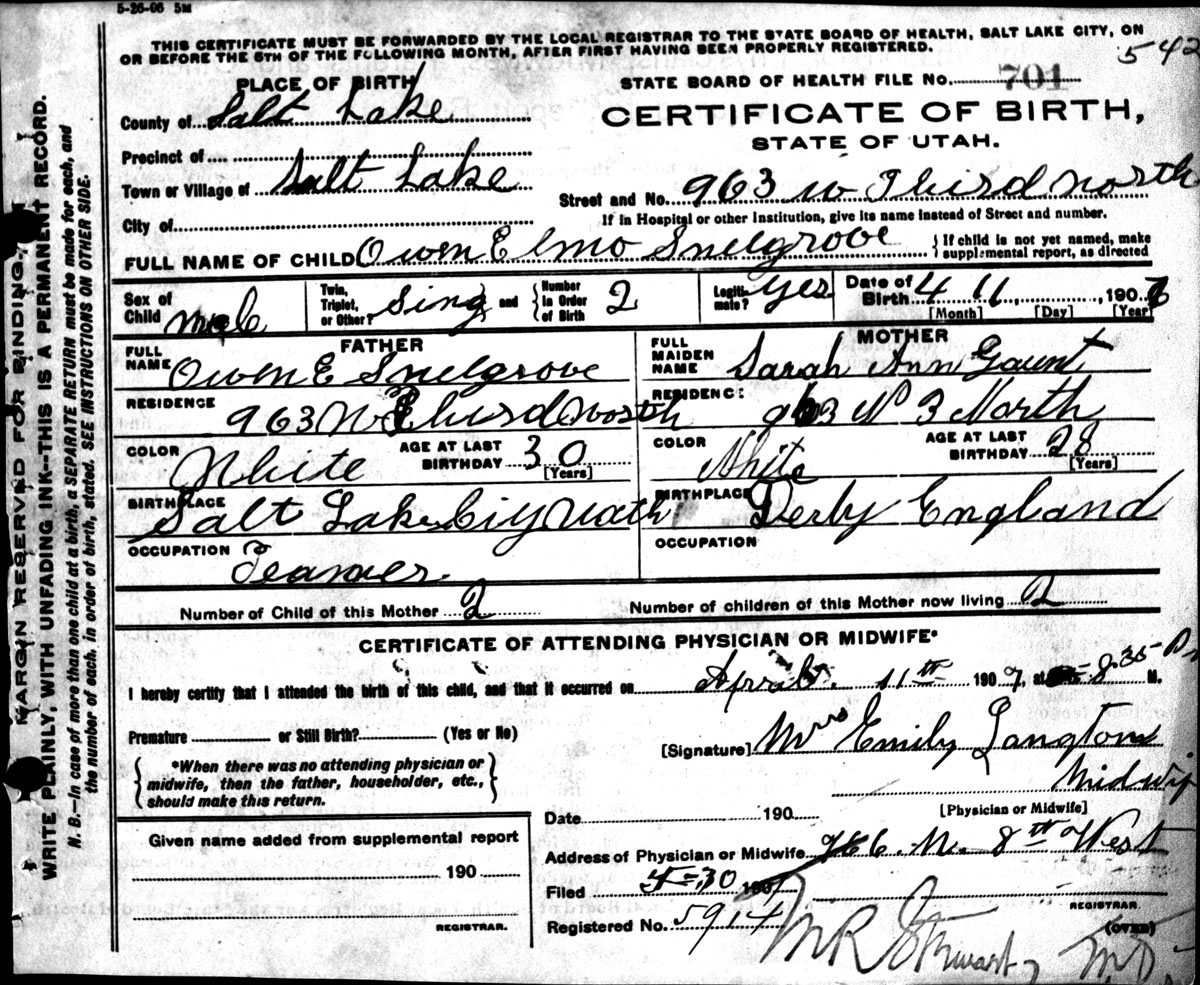 5-26-06 5M
THIS CERTIFICATE MUST BE FORWARDED BY THE LOCAL REGISTRAR TO THE STATE BOARD OF HEALTH, SALT LAKE CITY, ON
OR BEFORE THE 5TH OF THE FOLLOWING MONTH, AFTER FIRST HAVING BEEN PROPERLY REGISTERED.
542
PLACE OF BIRTH
STATE BOARD OF HEALTH FILE No. 701
County of Salt Lake
CERTIFICATE OF BIRTH,
STATE OF UTAH.
Precinct of
Town or Village of Salt Lake
Street and No. 963 W Third North
If in Hospital or other Institution, give its name instead of Street and number.
City of
FULL NAME OF CHILD Owen Elmo Snelgrove
{If child is not yet named, make
supplemental report, as directed
Sex of Child male
Twin, Triplet, or Other? Sing and {Number in Order of Birth 2
Legitimate? yes
Date of Birth 4 11, 1907
[Month] [Day] [Year]
FATHER
MOTHER
FULL NAME Owen E Snelgrove
FULL MAIDEN NAME Sarah Ann Gaunt
RESIDENCE 963 W Third North
RESIDENCE 963 W 3 North
COLOR White AGE AT LAST BIRTHDAY 30 [Years]
COLOR White AGE AT LAST BIRTHDAY 28 [Years]
BIRTHPLACE Salt Lake Ciy Utath
BIRTHPLACE Derby England
OCCUPATION Teamer
OCCUPATION
Number of Child of this Mother 2
Number of children of this Mother now living 2
CERTIFICATE OF ATTENDING PHYSICIAN OR MIDWIFE*
I hereby certify that I attended the birth of this child, and that it occurred on April 11th 1907, at 8.35 P M.
Premature or Still Birth? (Yes or No)
[Signature] Mrs Emily Langton
Midwif
[Physician or Midwife]
{*When there was no attending physician or
midwife, then the father, householder, etc.,
should make this return.}
Date 190
Given name added from supplemental report
190
REGISTRAR.
Address of Physician or Midwife N. 8th West
Filed 4-30 1907
REGISTRAR.
Registered No. 5914
(OVER)
M R Stewart M D
MARGIN RESERVED FOR BINDING.
WRITE PLAINLY, WITH UNFADING INK—THIS IS A PERMANENT RECORD.
N. B.—In case of more than one child at a birth, a SEPARATE RETURN must be made for each, and
the number of each, in order of birth, stated. SEE INSTRUCTIONS ON OTHER SIDE.